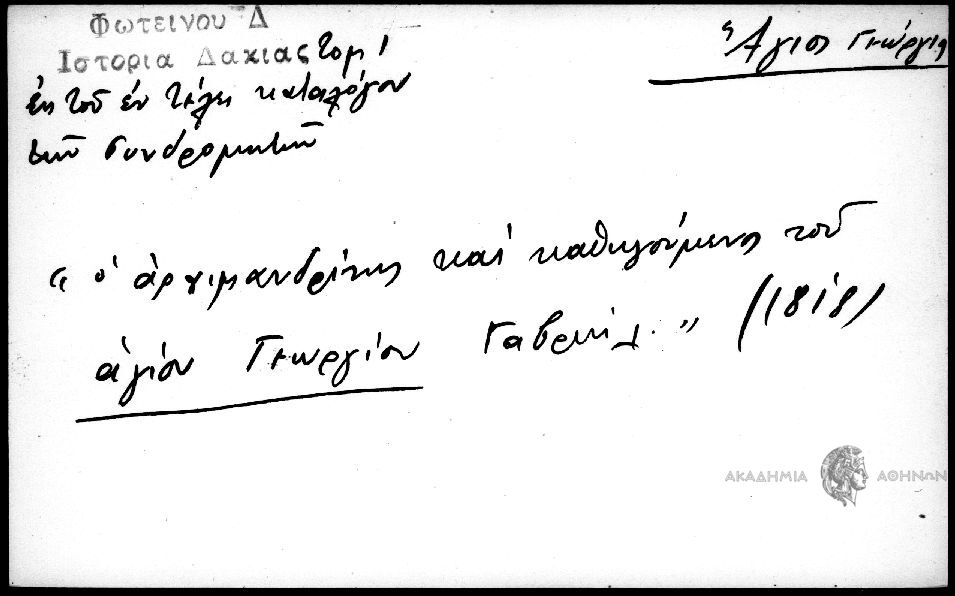 Φωτεινου Δ
Ιστορια Δακιας τομ 1
ἐκ τοῦ ἐν τέλει καταλόγου
τῶν συνδρομητῶν
Ἅγιος Γεώργιος
"ὁ ἀρχιμανδρίτης καὶ καθηγούμενος τοῦ
ἁγίου Γεωργίου Γαβριήλ." (1818)
ΑΚΑΔΗΜΙΑ ΑΘΗΝΩΝ